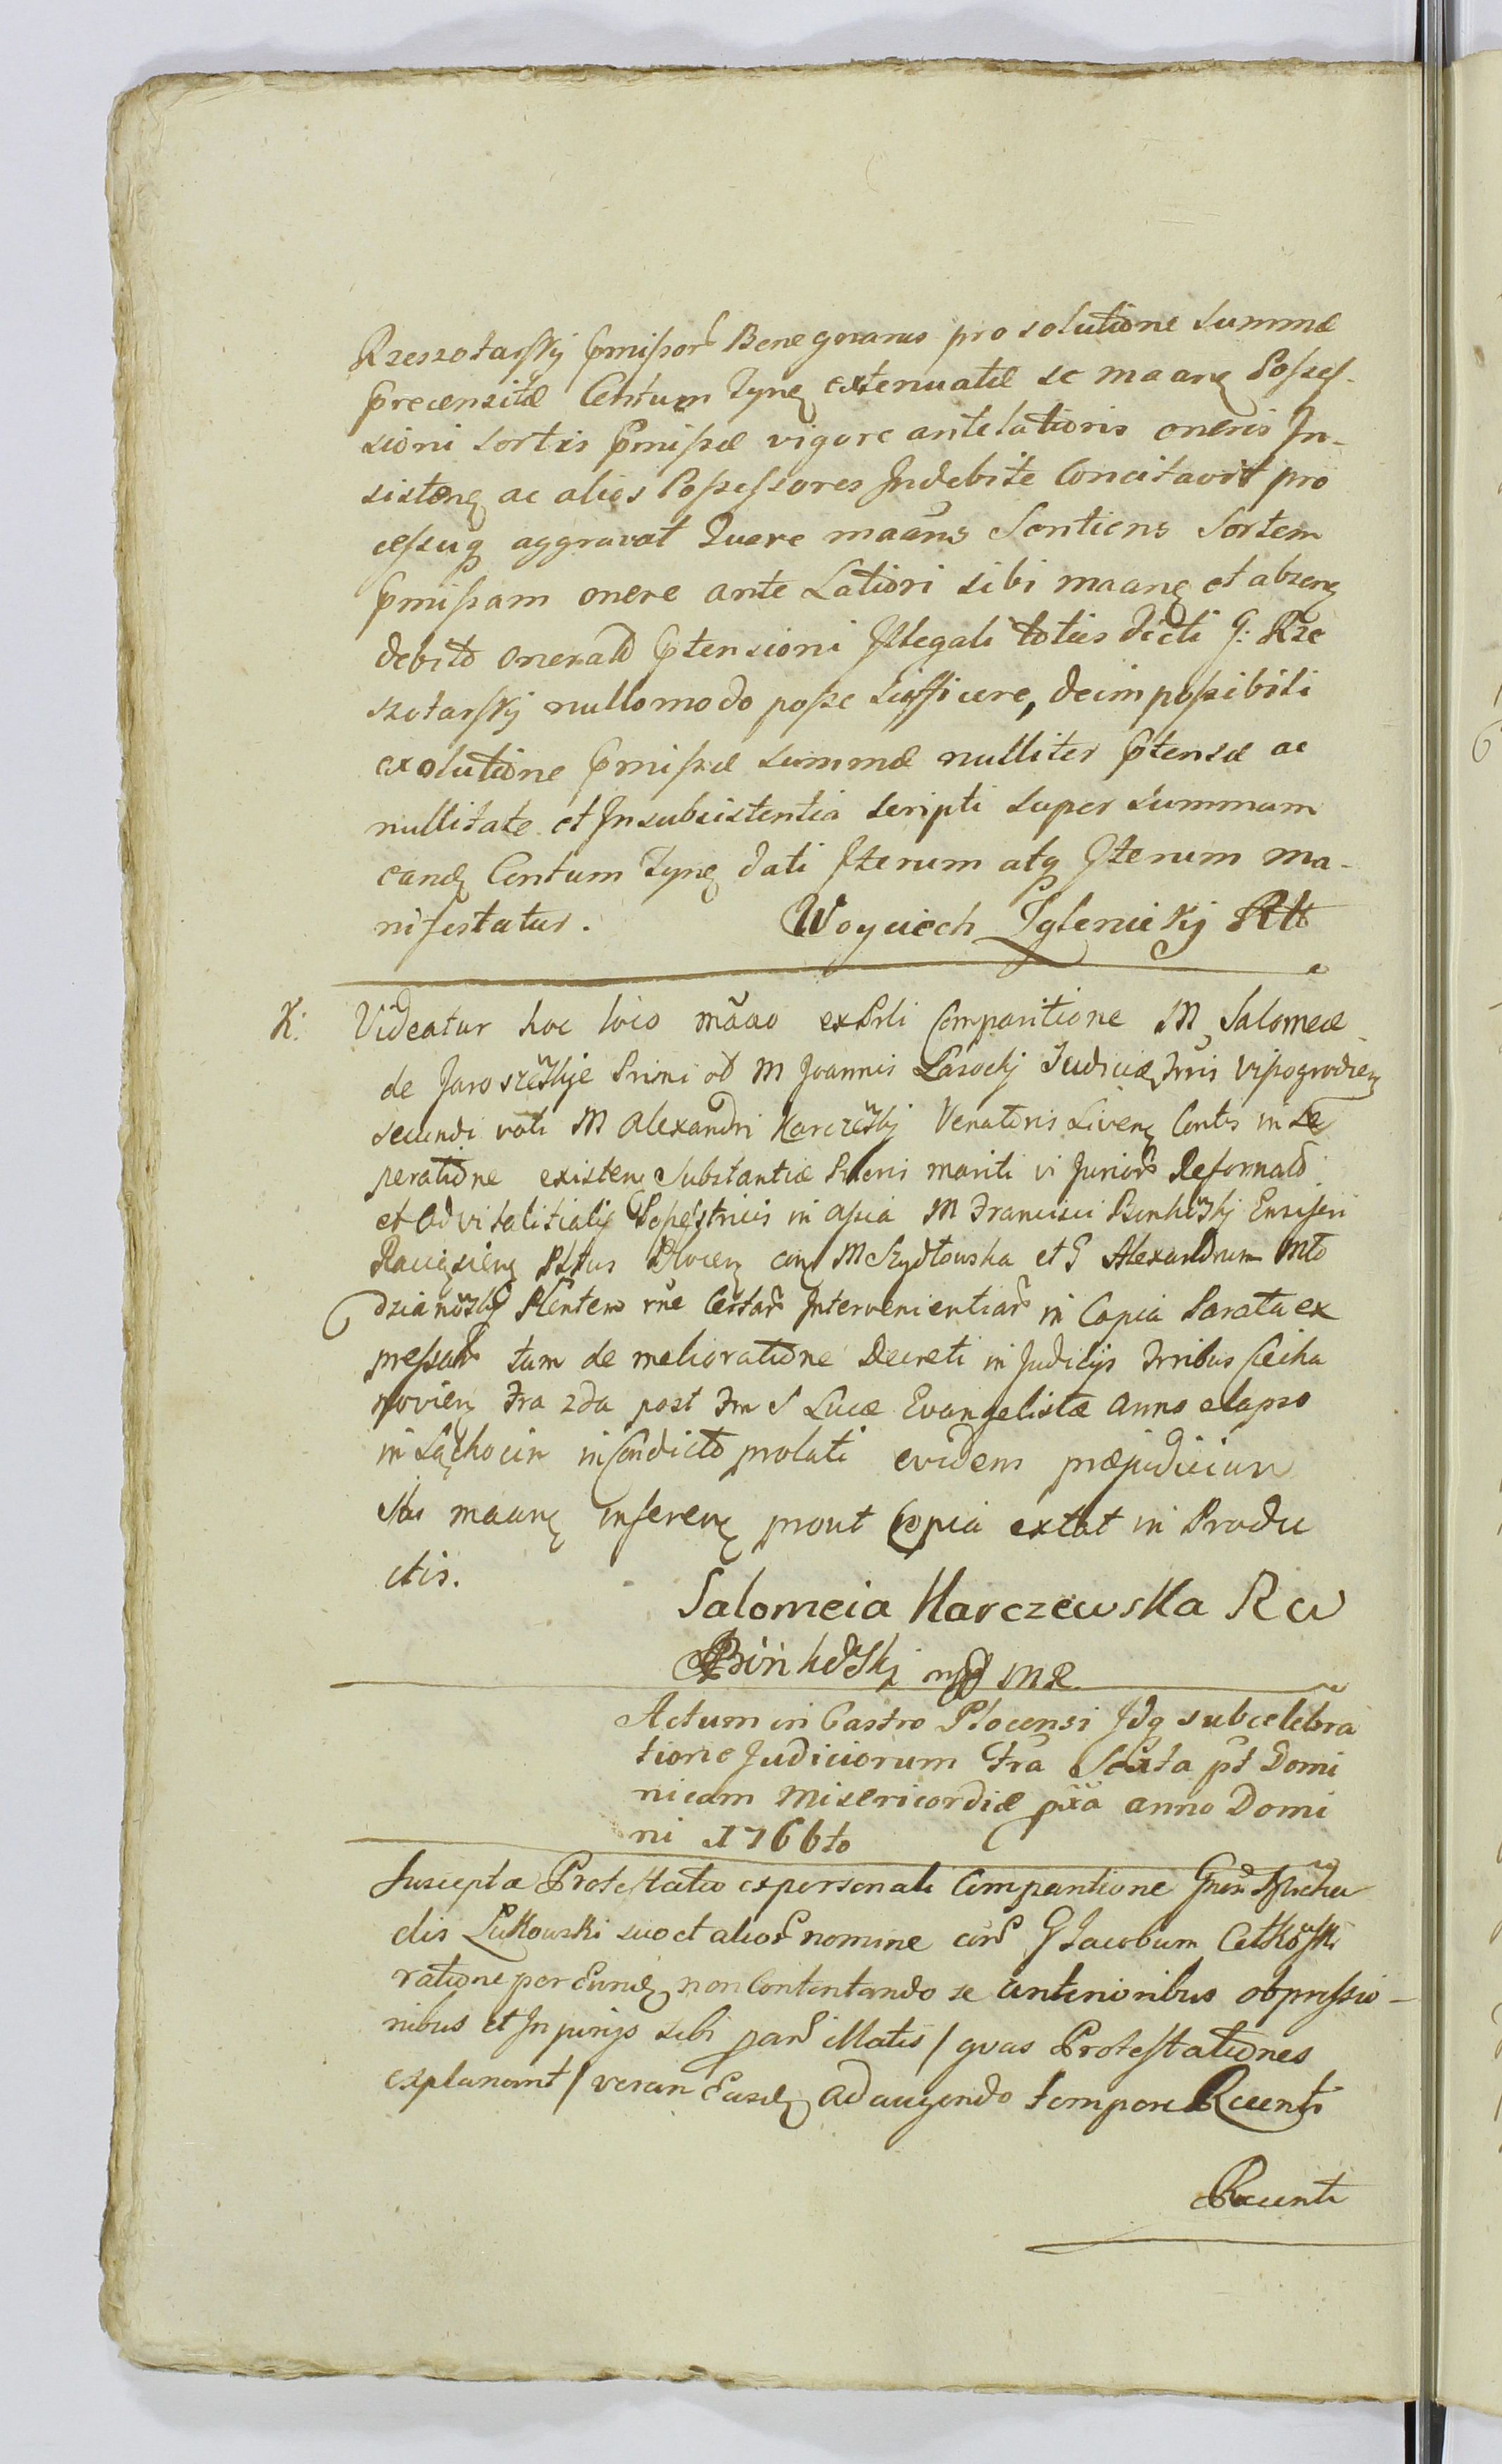 Rzeszotarskj pmissor Bonegnarus pro solutione summæ
precensitæ Centum Tynf extenuatæ se maanę Posses-
sioni sortis pmissæ vigore antelationis oneris In-
sistenę ac alios Possessores Indebite Concitavit pro
cessuq aggravat Quare maans Sentiens Sortem
pmissam onere ante Latiori sibi maanę et abrenę
debito onerato ptensioni Illegali toties dicti G: Rze
szotarskj nullomodo posse sufficere, de impossibili
exolutione pmissæ summæ nulliter ptensæ ac
nullitate et Insubsistentia scripti super summam
eandę Centum Tynf dati Iterum atq Iterum ma-
nifestatur. Woyciech Iglenickj
K: Videatur hoc loco mãao exPrli Comparitione M. Salomeæ
de Jaroszewskje Primi ol M Joannis Lasockj Judicis Trris Vissogrodien
secundi voti M Alexandri Karczewskj Venatoris Livenę Contis in Se
peratione existenę Substantiæ Prioris mariti vi Juriom Reformato
et advitalitialis Possestricis in assia M Francisci Bonkowskj Ensiferi
Raciążienę Pltus Plocenę conę M Szydłowska et G Alexandrum Mło
dzianowskj Plentem rne Certar Intervenientiar in Copia Parata ex
pressar tum de melioratione Decreti in Judicijs Trribus Ciecha
novienę Fra 2da post Fm S Lucæ Evangelistæ Anno elapso
in Ląchocin in Condicto prolati evidens præjudicium
Jtus maanę inferenę prout Copia extat in Produ
ctis.
Salomeia Karczewska R w
Bońkowskj mp MR
Actum in Castro Plocensi Idq sub celebra
tione Judiciorum Fra Sexta pt Domi
nicam Misericordiæ pxa anno Domi
ni 1766to
Suscepta Protestatio ex personali Comparitione Gnor
dis Lutkowski suo et alior nomine con G Jacobum Cetkowski
ratione per Eundę non Contentando se anterioribus oppressio-
nibus et Injurijs sibi par illatis / quas Protestationes
explanant / verum Easdę adaugendo tempore Recenti
Recenti